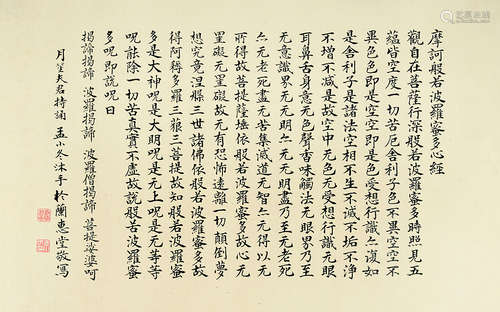 摩訶般若波羅蜜多心經
觀自在菩薩行深般若波羅蜜多時照見五
蘊皆空度一切苦厄舍利子色不異空空不
異色色即是空空即是色受想行識亦復如
是舍利子是諸法空相不生不滅不垢不淨
不增不減是故空中无色无受想行識无眼
耳鼻舌身意无色聲香味觸法无眼界乃至
无意識界无无明亦无无明盡乃至无老死
亦无老死盡无苦集滅道无智亦无得以无
所得故菩提薩埵依般若波羅蜜多故心无
罣礙无罣礙故无有恐怖遠離一切顛倒夢
想究竟涅槃三世諸佛依般若波羅蜜多故
得阿耨多羅三藐三菩提故知般若波羅蜜
多是大神呪是大明呪是无上呪是无等等
呪能除一切苦真實不虛故說般若波羅蜜
多呪即說呪曰
揭諦揭諦 波羅揭諦 波羅僧揭諦 菩提娑婆呵
月笙夫君持誦 孟小冬沐手於蘭惠堂敬寫